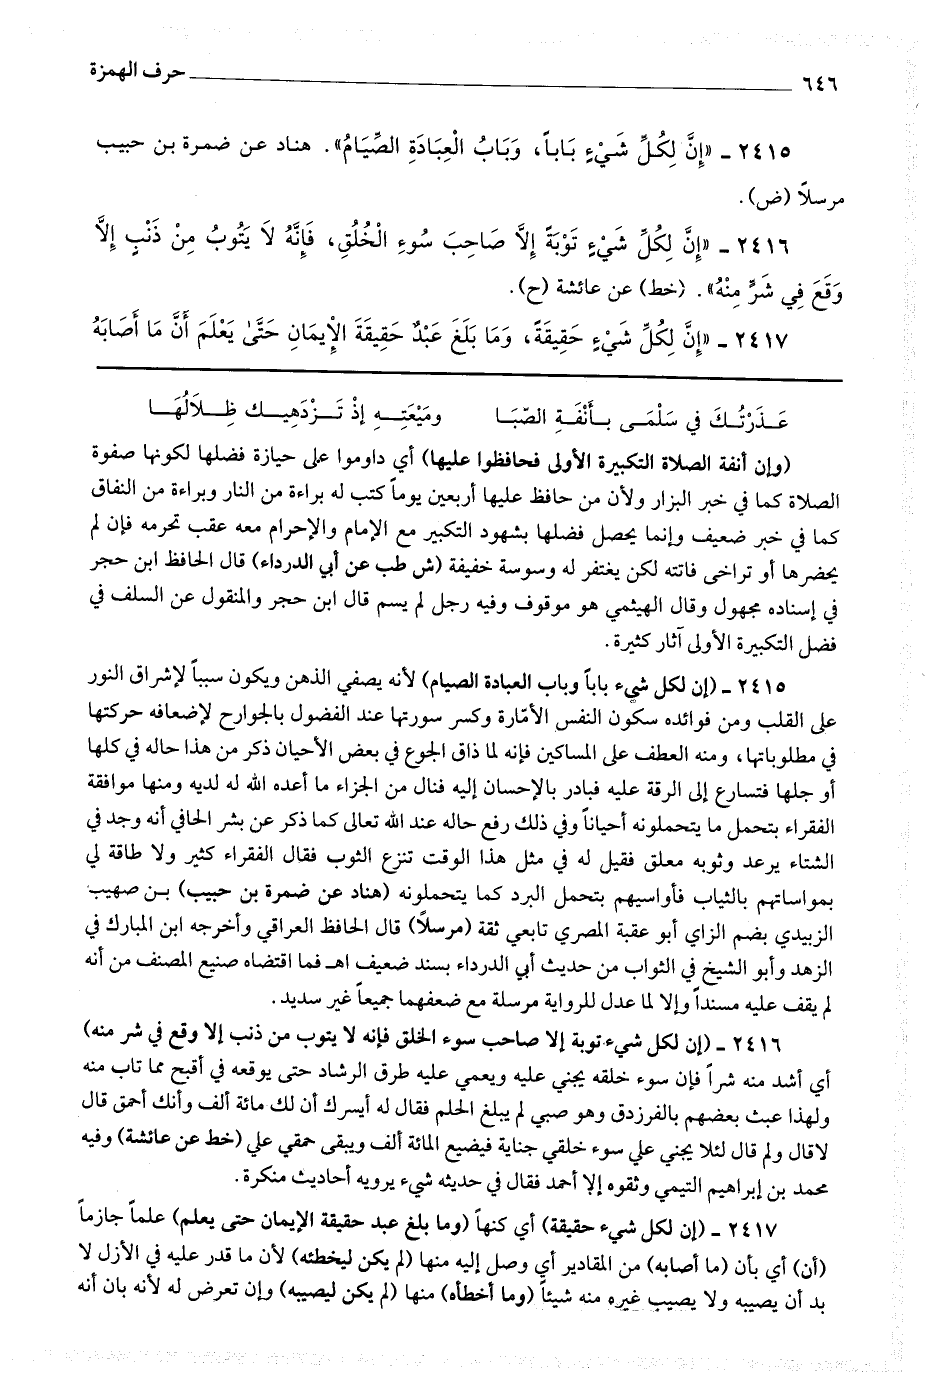 ٦٤٦ حرف الهمزة
٢٤١٥ ـ «إِنَّ لِكُلِّ شَيْءٍ بَاباً، وَبَابُ الْعِبَادَةِ الصِّيَامُ». هناد عن ضمرة بن حبيب
مرسلاً (ض).
٢٤١٦ ـ «إِنَّ لِكُلِّ شَيْءٍ تَوْبَةً إِلاَّ صَاحِبَ سُوءِ الْخُلُقِ، فَإِنَّهُ لاَ يَتُوبُ مِنْ ذَنْبٍ إِلاَّ
وَقَعَ فِي شَرٍّ مِنْهُ». (خط) عن عائشة (ح).
٢٤١٧ ـ «إِنَّ لِكُلِّ شَيْءٍ حَقِيقَةً، وَمَا بَلَغَ عَبْدٌ حَقِيقَةَ الْإِيمَانِ حَتَّىٰ يَعْلَمَ أَنَّ مَا أَصَابَهُ
عَـذَرْتُـكَ في سَلْمَـى بـأَنْفَـةِ الصّبَـا وميْعَتِـــهِ إذْ تَـــزْدَهِيـــك ظِـــلاَلُهَـا
(وإن أنفة الصلاة التكبيرة الأولى فحافظوا عليها) أي داوموا على حيازة فضلها لكونها صفوة
الصلاة كما في خبر البزار ولأن من حافظ عليها أربعين يوماً كتب له براءة من النار وبراءة من النفاق
كما في خبر ضعيف وإنما يحصل فضلها بشهود التكبير مع الإمام والإحرام معه عقب تحرمه فإن لم
يحضرها أو تراخى فاتته لكن يغتفر له وسوسة خفيفة (ش طب عن أبي الدرداء) قال الحافظ ابن حجر
في إسناده مجهول وقال الهيثمي هو موقوف وفيه رجل لم يسم قال ابن حجر والمنقول عن السلف في
فضل التكبيرة الأولى آثار كثيرة.
٢٤١٥ ـ (إن لكل شيء باباً وباب العبادة الصيام) لأنه يصفي الذهن ويكون سبباً لإشراق النور
على القلب ومن فوائده سكون النفس الأمّارة وكسر سورتها عند الفضول بالجوارح لإضعافه حركتها
في مطلوباتها، ومنه العطف على المساكين فإنه لما ذاق الجوع في بعض الأحيان ذكر من هذا حاله في كلها
أو جلها فتسارع إلى الرقة عليه فبادر بالإحسان إليه فنال من الجزاء ما أعده الله له لديه ومنها موافقة
الفقراء بتحمل ما يتحملونه أحياناً وفي ذلك رفع حاله عند الله تعالى كما ذكر عن بشر الحافي أنه وجد في
الشتاء يرعد وثوبه معلق فقيل له في مثل هذا الوقت تنزع الثوب فقال الفقراء كثير ولا طاقة لي
بمواساتهم بالثياب فأواسيهم بتحمل البرد كما يتحملونه (هناد عن ضمرة بن حبيب) بـن صهيب
الزبيدي بضم الزاي أبو عقبة المصري تابعي ثقة (مرسلاً) قال الحافظ العراقي وأخرجه ابن المبارك في
الزهد وأبو الشيخ في الثواب من حديث أبي الدرداء بسند ضعيف اهـ فما اقتضاه صنيع المصنف من أنه
لم يقف عليه مسنداً وإلا لما عدل للرواية مرسلة مع ضعفهما جميعاً غير سديد.
٢٤١٦ ـ (إن لكل شيء توبة إلا صاحب سوء الخلق فإنه لا يتوب من ذنب إلا وقع في شر منه)
أي أشد منه شراً فإن سوء خلقه يجني عليه ويعمي عليه طرق الرشاد حتى يوقعه في أقبح مما تاب منه
ولهذا عبث بعضهم بالفرزدق وهو صبي لم يبلغ الحلم فقال له أيسرك أن لك مائة ألف وأنك أحمق قال
لاقال ولم قال لئلا يجني علي سوء خلقي جناية فيضيع المائة ألف ويبقى حمقي علي (خط عن عائشة) وفيه
محمد بن إبراهيم التيمي وثقوه إلا أحمد فقال في حديثه شيء يرويه أحاديث منكرة.
٢٤١٧ ـ (إن لكل شيء حقيقة) أي كنهاً (وما بلغ عبد حقيقة الإيمان حتى يعلم) علماً جازماً
(أن) أي بأن (ما أصابه) من المقادير أي وصل إليه منها (لم يكن ليخطئه) لأن ما قدر عليه في الأزل لا
بد أن يصيبه ولا يصيب غيره منه شيئاً (وما أخطأه) منها (لم يكن ليصيبه) وإن تعرض له لأنه بان أنه